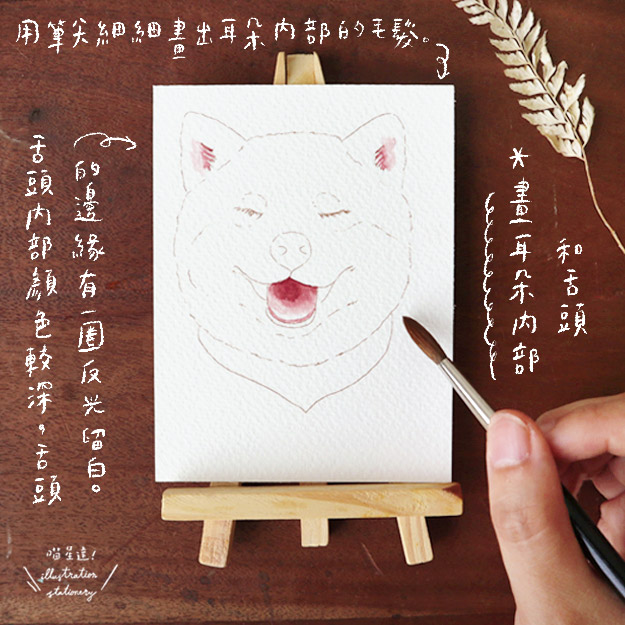 用筆尖細細畫出耳朵內部的毛髮。
*畫耳朵內部
和舌頭
舌頭內部顏色較深,舌頭
的邊緣有一圈反光留白。
喵星達!
illustration
stationery